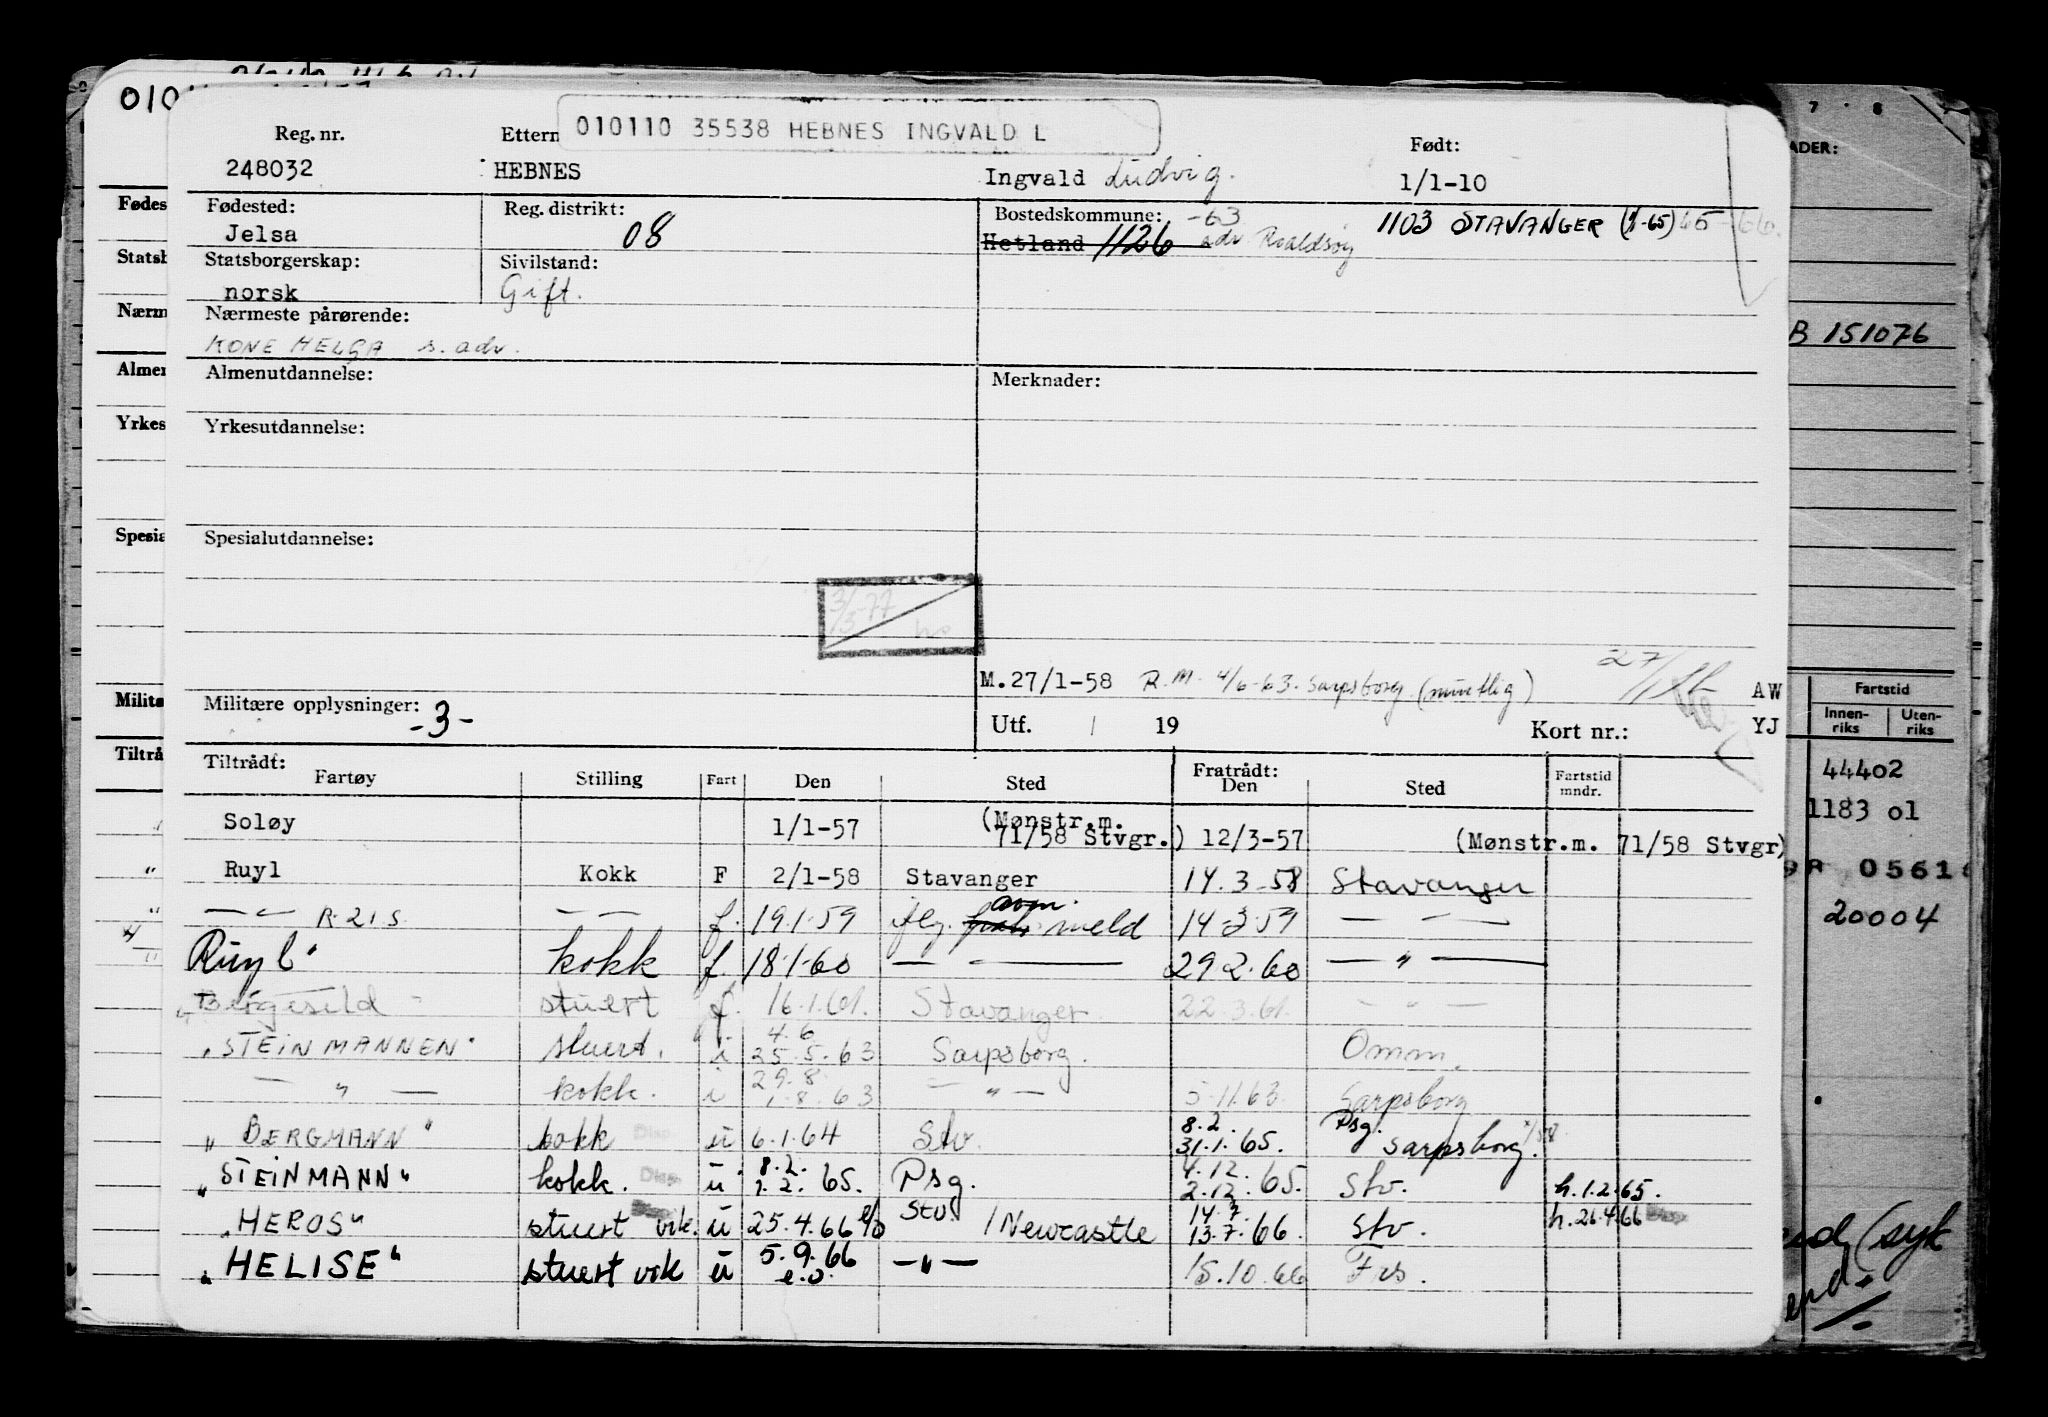 010110 35538 HEBNES INGVALD L
Reg. nr. Ettern Født:
248032 HEBNES Ingvald Ludvig. 1/1-10
Fødested: Reg. distrikt: Bostedskommune: -63 1103 STAVANGER (1/1-65) 65-66.
Jelsa 08 Hetland 1126 adv Roaldsøy
Statsborgerskap: Sivilstand:
norsk Gift.
Nærmeste pårørende:
KONE HELGA s. adv.
Almenutdannelse: Merknader:
Yrkesutdannelse:
Spesialutdannelse:
3/3-77
M.27/1-58 R.M. 4/6-63. Sarpsborg. (muntlig) AW
Militære opplysninger: -3-
Utf. / 19 Kort nr.: YJ
Tiltrådt: Fratrådt:
Fartøy Stilling Fart Den Sted Den Sted Fartstid mndr.
Soløy 1/1-57 (Mønstr.m. 71/58 Stvgr.) 12/3-57 (Mønstr.m. 71/58 Stvgr)
" Ruyl Kokk F 2/1-58 Stavanger 14.3-58 Stavanger
" — " — R.21.S. — — f. 19.1.59 flg. avm. meld 14-3-59 — " —
Ruyl" kokk f. 18.1-60 — " — 29.2.60 — " —
"Bergesild" stuert f. 16.1.61. Stavanger 22.3.61. — " —
"STEINMANNEN" stuert. i 4.6 25.5.63 Sarpsborg. Omm.
— " — kokk. i 29.8. 1.8.63 — " — 5.11.63. Sarpsborg
"BERGMANN" kokk Disp. u 6.1.64 Stv. 8.2. 31.1.65. Psg. Sarpsborg.
"STEINMANN" kokk. Disp. u. 8.2. 1.2.65. Psg. 4.12. 2.12.65. Stv. h.1.2.65.
"HEROS" stuert vik. u 25.4.66 e/o Stv. /Newcastle 14.7. 13.7.66. Stv. h.26.4.66 Disp
"HELISE" stuert vik u 5.9.66 e.o. — " — 15.10.66 Frs.
0101
Fødes
Statsb
Nærm
Almen
Yrkes
Spesia
Militæ
Tiltrå
7 · 8
ADER:
B 151076
Fartstid
Innen-riks Uten-riks
44402
1183 01
0561
20004
(syk